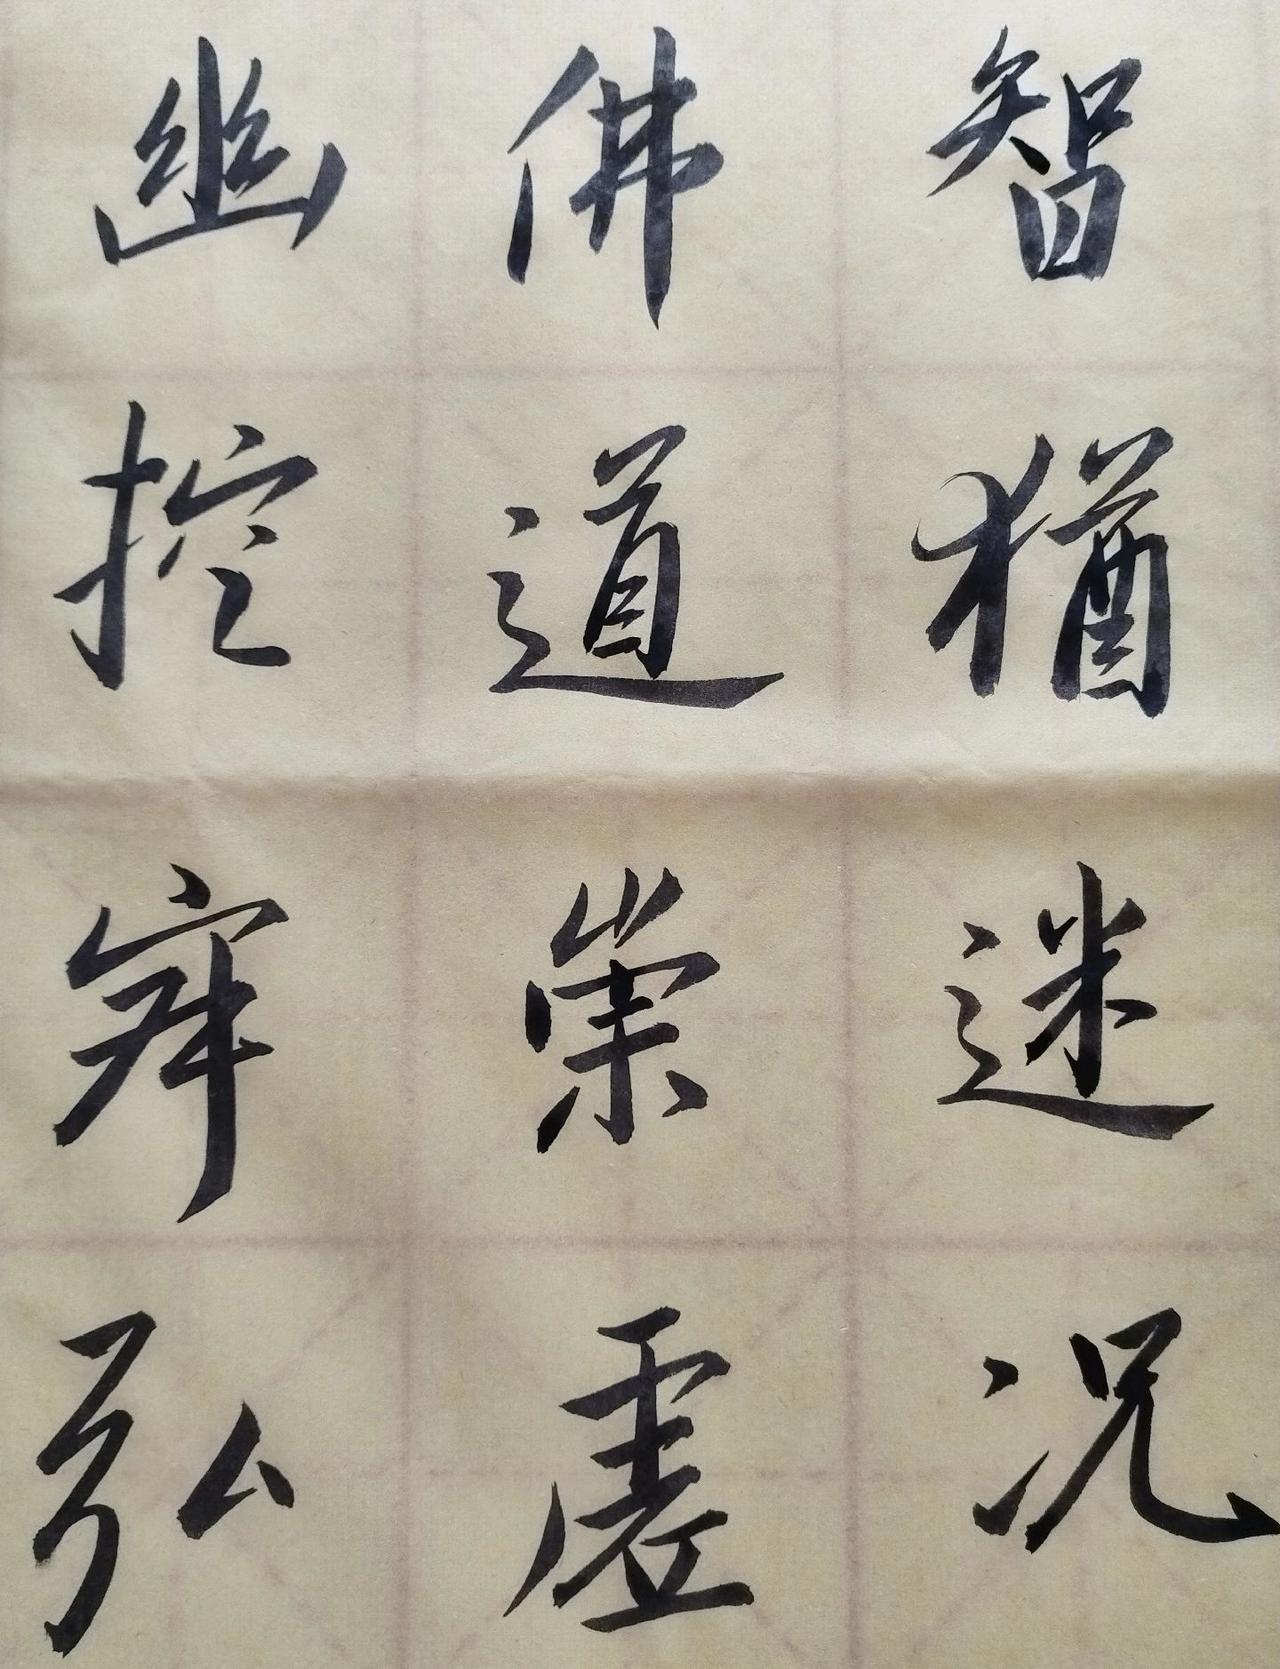 智猶迷况
佛道崇虚
幽控寂弘